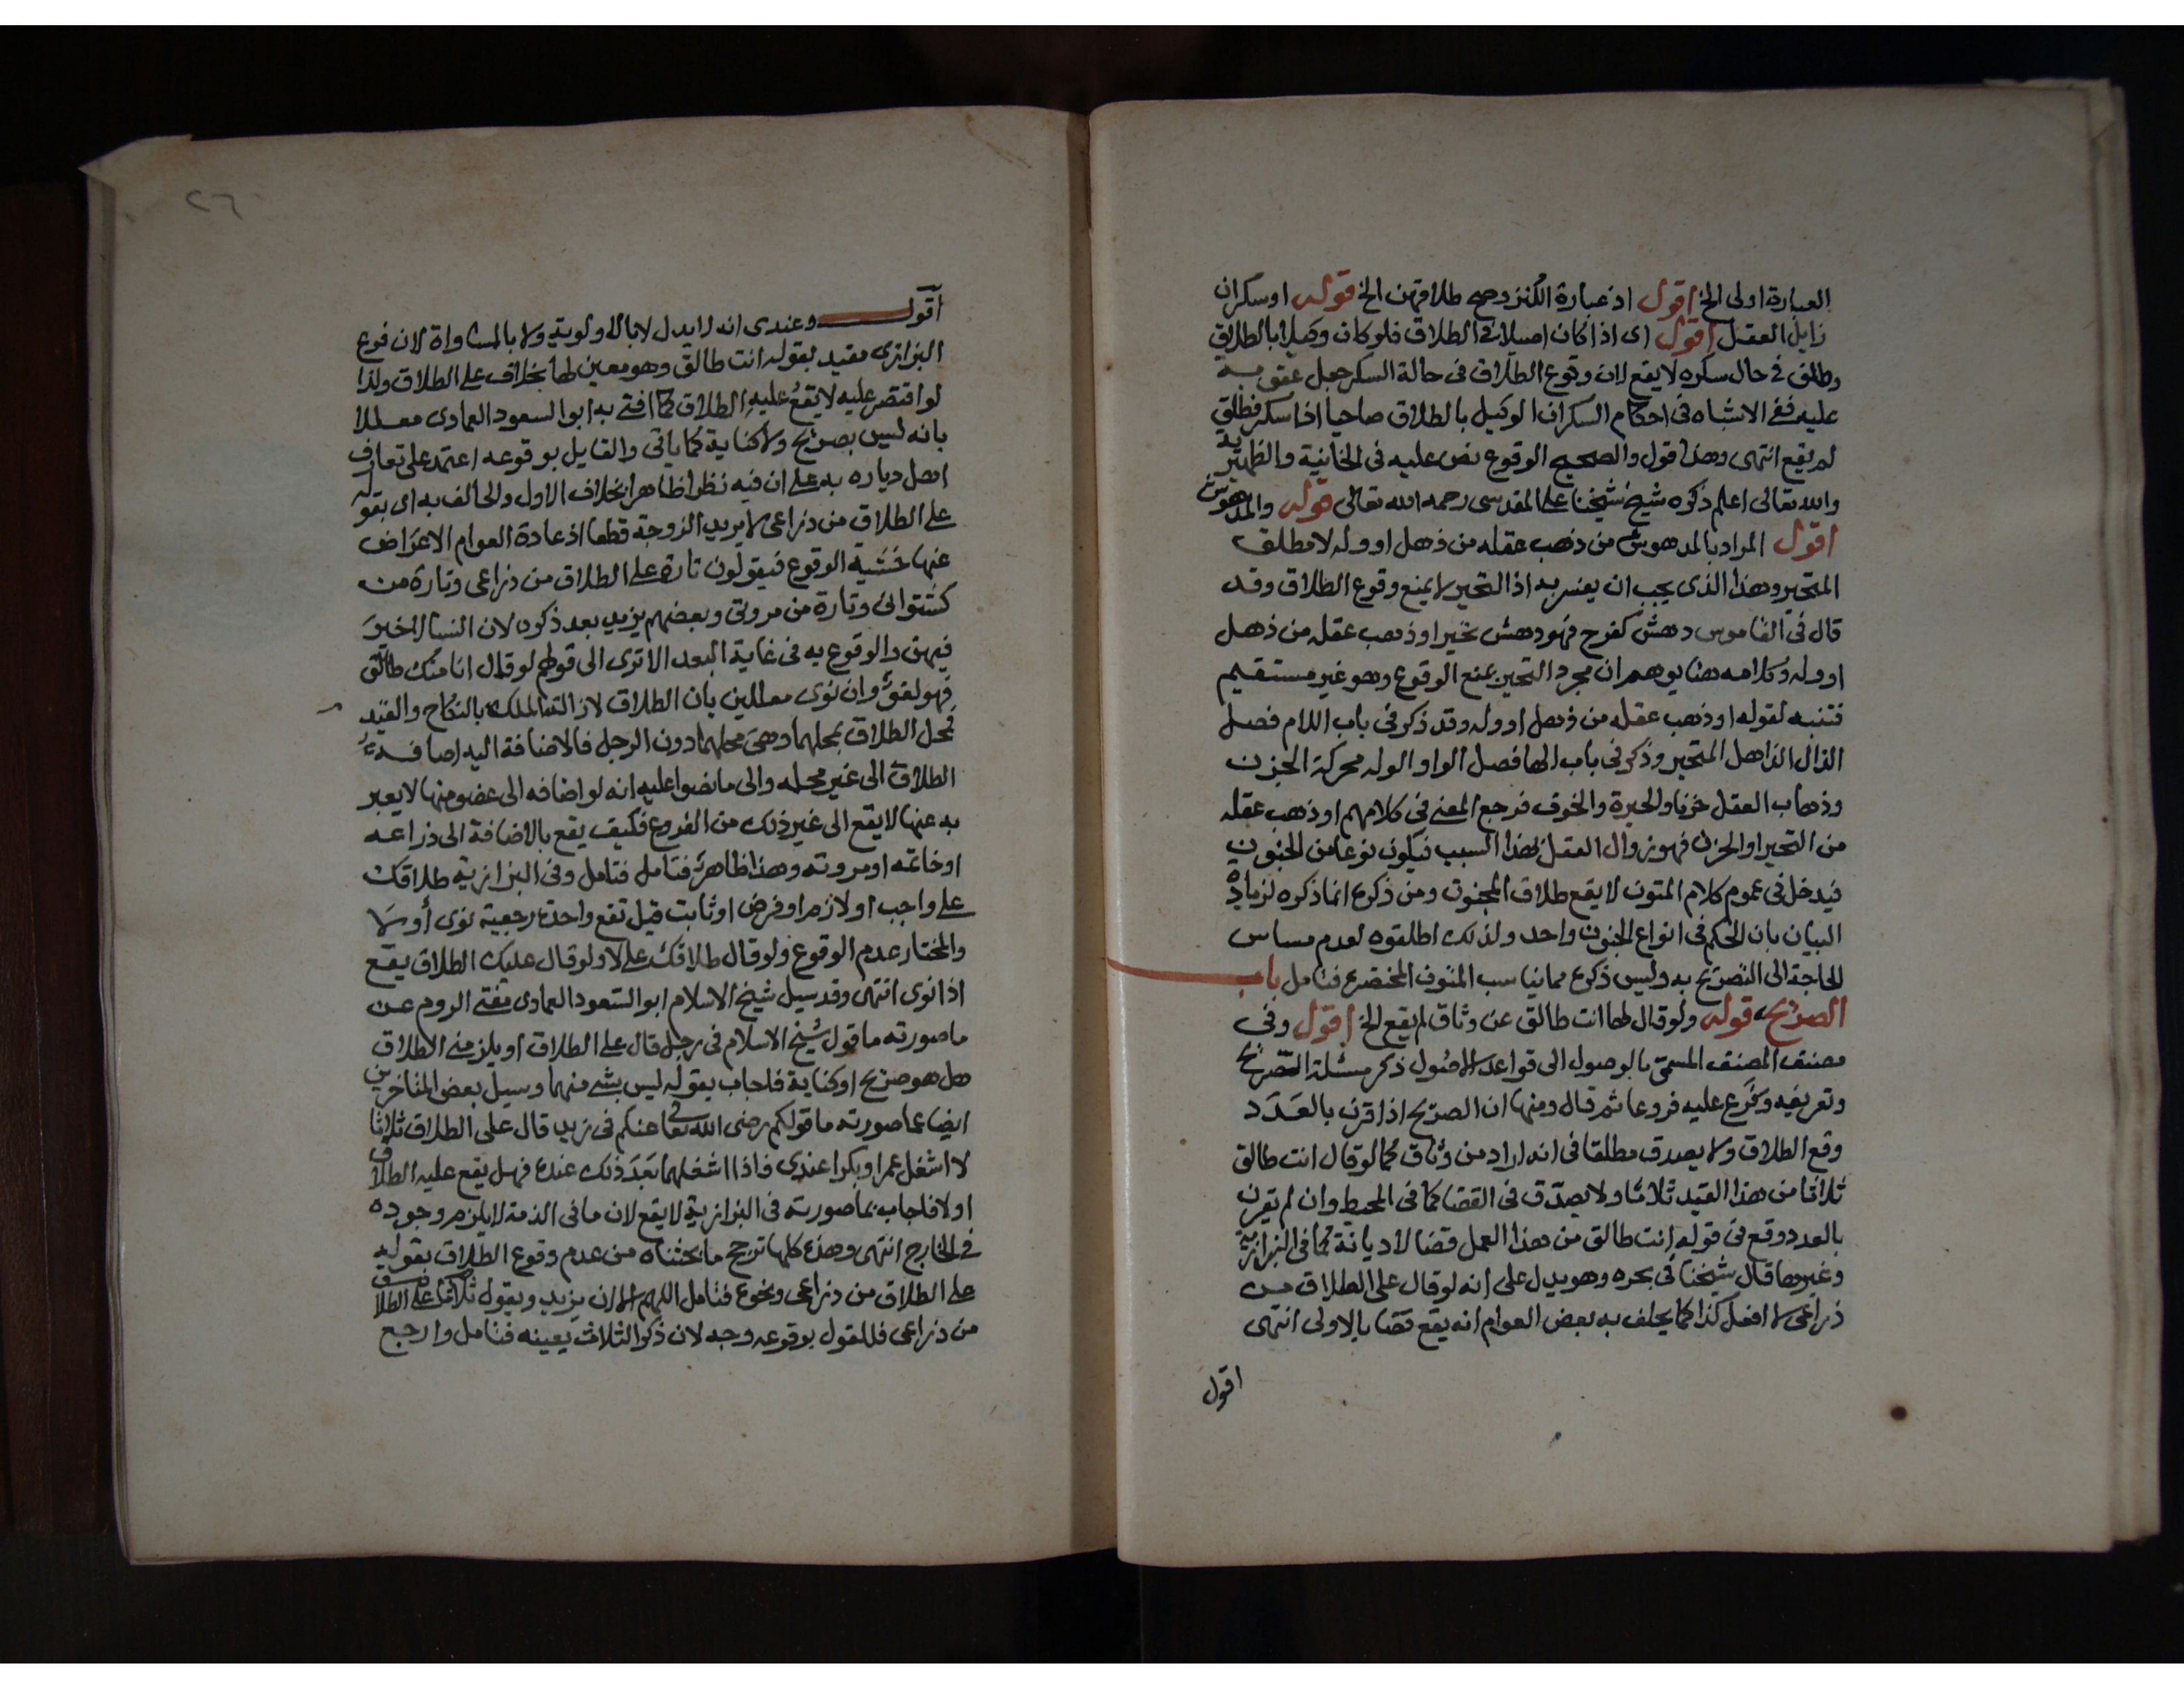 العبارة اولى الخ اقول اذ عبارة الكنز وصح طلاقهن الخ قوله او سكران
زايل العقل اقول اى اذا كان اصيلا فى الطلاق فلو كان وكيلا بالطلاق
وطلق فى حال سكره لا يقع لان وقوع الطلاق فى حالة السكر جعل عقوبة
عليه ففى الاشباه فى احكام السكران الوكيل بالطلاق صاحيا اذا سكر فطلق
لم يقع انتهى وهذا قول والصحيح الوقوع نص عليه فى الخانية والظهيرية
والله تعالى اعلم ذكره شيخ شيخنا على المقدسى رحمه الله تعالى قوله والمدهوش
اقول المراد بالمدهوش من ذهب عقله من ذهل او وله لا مطلق
المتحير وهذا الذى يجب ان يفسر به اذ التحير لا يمنع وقوع الطلاق وقد
قال فى القاموس دهش كفرح فهو دهش تحير او ذهب عقله من ذهل
او وله وكلامه هنا يوهم ان مجرد التحير يمنع الوقوع وهو غير مستقيم
فتنبه لقوله او ذهب عقله من ذهل او وله وقد ذكر فى باب اللام فصل
الذال الذاهل المتحير وذكر فى باب الها فصل الواو الوله محركة الحزن
وذهاب العقل حزنا والحيرة والخوف فرجع المعنى فى كلامهم او ذهب عقله
من التحير او الحزن فهو زوال العقل لهذا السبب فيكون نوعا من الجنون
فيدخل فى عموم كلام المتون لا يقع طلاق المجنون ومن ذكره انما ذكره لزيادة
البيان بان الحكم فى انواع الجنون واحد ولذلك اطلقوه لعدم مساس
الحاجة الى التصريح به وليس ذكره مما يناسب المتون المختصرة فتامل باب
الصريح قوله ولو قال لها انت طالق عن وثاق لم يقع الخ اقول وفى
مصنف المصنف المسمى بالوصول الى قواعد الاصول ذكر مسئلة التصريح
وتعريفه وفرع عليه فروعا ثم قال ومنها ان الصريح اذا قرن بالعدد
وقع الطلاق ولا يصدق مطلقا فى انه اراد من وثاق كما لو قال انت طالق
ثلاثا من هذا القيد ثلاثا ولا يصدق فى القضا كما فى المحيط وان لم يقرن
بالعدد وقع فى قوله انت طالق من هذا العمل قضا لا ديانة كما فى البزازية
وغيرها قال شيخنا فى بحره وهو يدل على انه لو قال على الطلاق من
ذراعى لا افعل كذا كما يحلف به بعض العوام انه يقع قضا بالاولى انتهى
اقول
٢٦
اقول وعندى انه لا يدل لا بالاولوية ولا بالمساواة لان فرع
البزازى مقيد بقوله انت طالق وهو معين لها بخلاف على الطلاق ولذا
لو اقتصر عليه لا يقع عليه الطلاق كما افتى به ابو السعود العمادى معللا
بانه ليس بصريح ولا كناية كما ياتى والقايل بوقوعه اعتمد على تعارف
اهل دياره به على ان فيه نظرا ظاهرا بخلاف الاول والحالف به اى بقوله
على الطلاق من ذراعى لا يريد الزوجة قطعا اذ عادة العوام الاعراض
عنها خشية الوقوع فيقولون تارة على الطلاق من ذراعى وتارة من
كشتوانى وتارة من مروتى وبعضهم يزيد بعد ذكره لان النسا لا خير
فيهن والوقوع به فى غاية البعد الا ترى الى قولهم لو قال انا منك طالق
فهو لغو وان نوى معللين بان الطلاق لازالة الملك بالنكاح والقيد
فمحل الطلاق بمحلهما وهى محلهما دون الرجل فالاضافة اليه اضافة
الطلاق الى غير محله والى ما نصوا عليه انه لو اضافه الى عضو منها لا يعبر
به عنها لا يقع الى غير ذلك من الفروع فكيف يقع بالاضافة الى ذراعه
او خاتمه او مروته وهذا ظاهر فتامل فتامل وفى البزازية طلاقك
على واجب او لازم او فرض او ثابت قيل تقع واحدة رجعية نوى أو لا
والمختار عدم الوقوع ولو قال طلاقك على لا ولو قال عليك الطلاق يقع
اذا نوى انتهى وقد سيل شيخ الاسلام ابو السعود العمادى مفتى الروم عن
ما صورته ما قول شيخ الاسلام فى رجل قال على الطلاق او يلزمنى الطلاق
هل هو صريح او كناية فاجاب بقوله ليس بشى منهما وسيل بعض المتاخرين
ايضا عما صورته ما قولكم رضى الله تعالى عنكم فى زيد قال على الطلاق ثلاثا
لا اشغل عمرا وبكرا عندى فاذا اشغلهما بَعدَ ذلك عنده فهل يقع عليه الطلاق
او لا فاجاب بما صورته فى البزازية لا يقع لان ما فى الذمة لا يلزم وجوده
فى الخارج انتهى وهذه كلها ترجح ما بحثناه من عدم وقوع الطلاق بقوله
على الطلاق من ذراعى ونحوه فتامل اللهم الا ان يزيد ويقول على الطلاق
من ذراعى فللقول بوقوعه وجه لان ذكر الثلاث يعينه فتامل وارجع